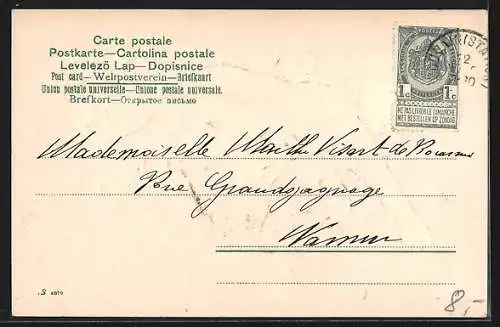 Carte postale
Postkarte—Cartolina postale
Levelező Lap—Dopisnice
Post card—Weltpostverein—Briefkaart
Union postale universelle—Unione postale universale.
Brefkort—Открытое письмо
1c 1c
NE PAS LIVRER LE DIMANCHE
NIET BESTELLEN OP ZONDAG
Mademoiselle Marthe Visart de
Rue Grandgagnage
Namur
8,-